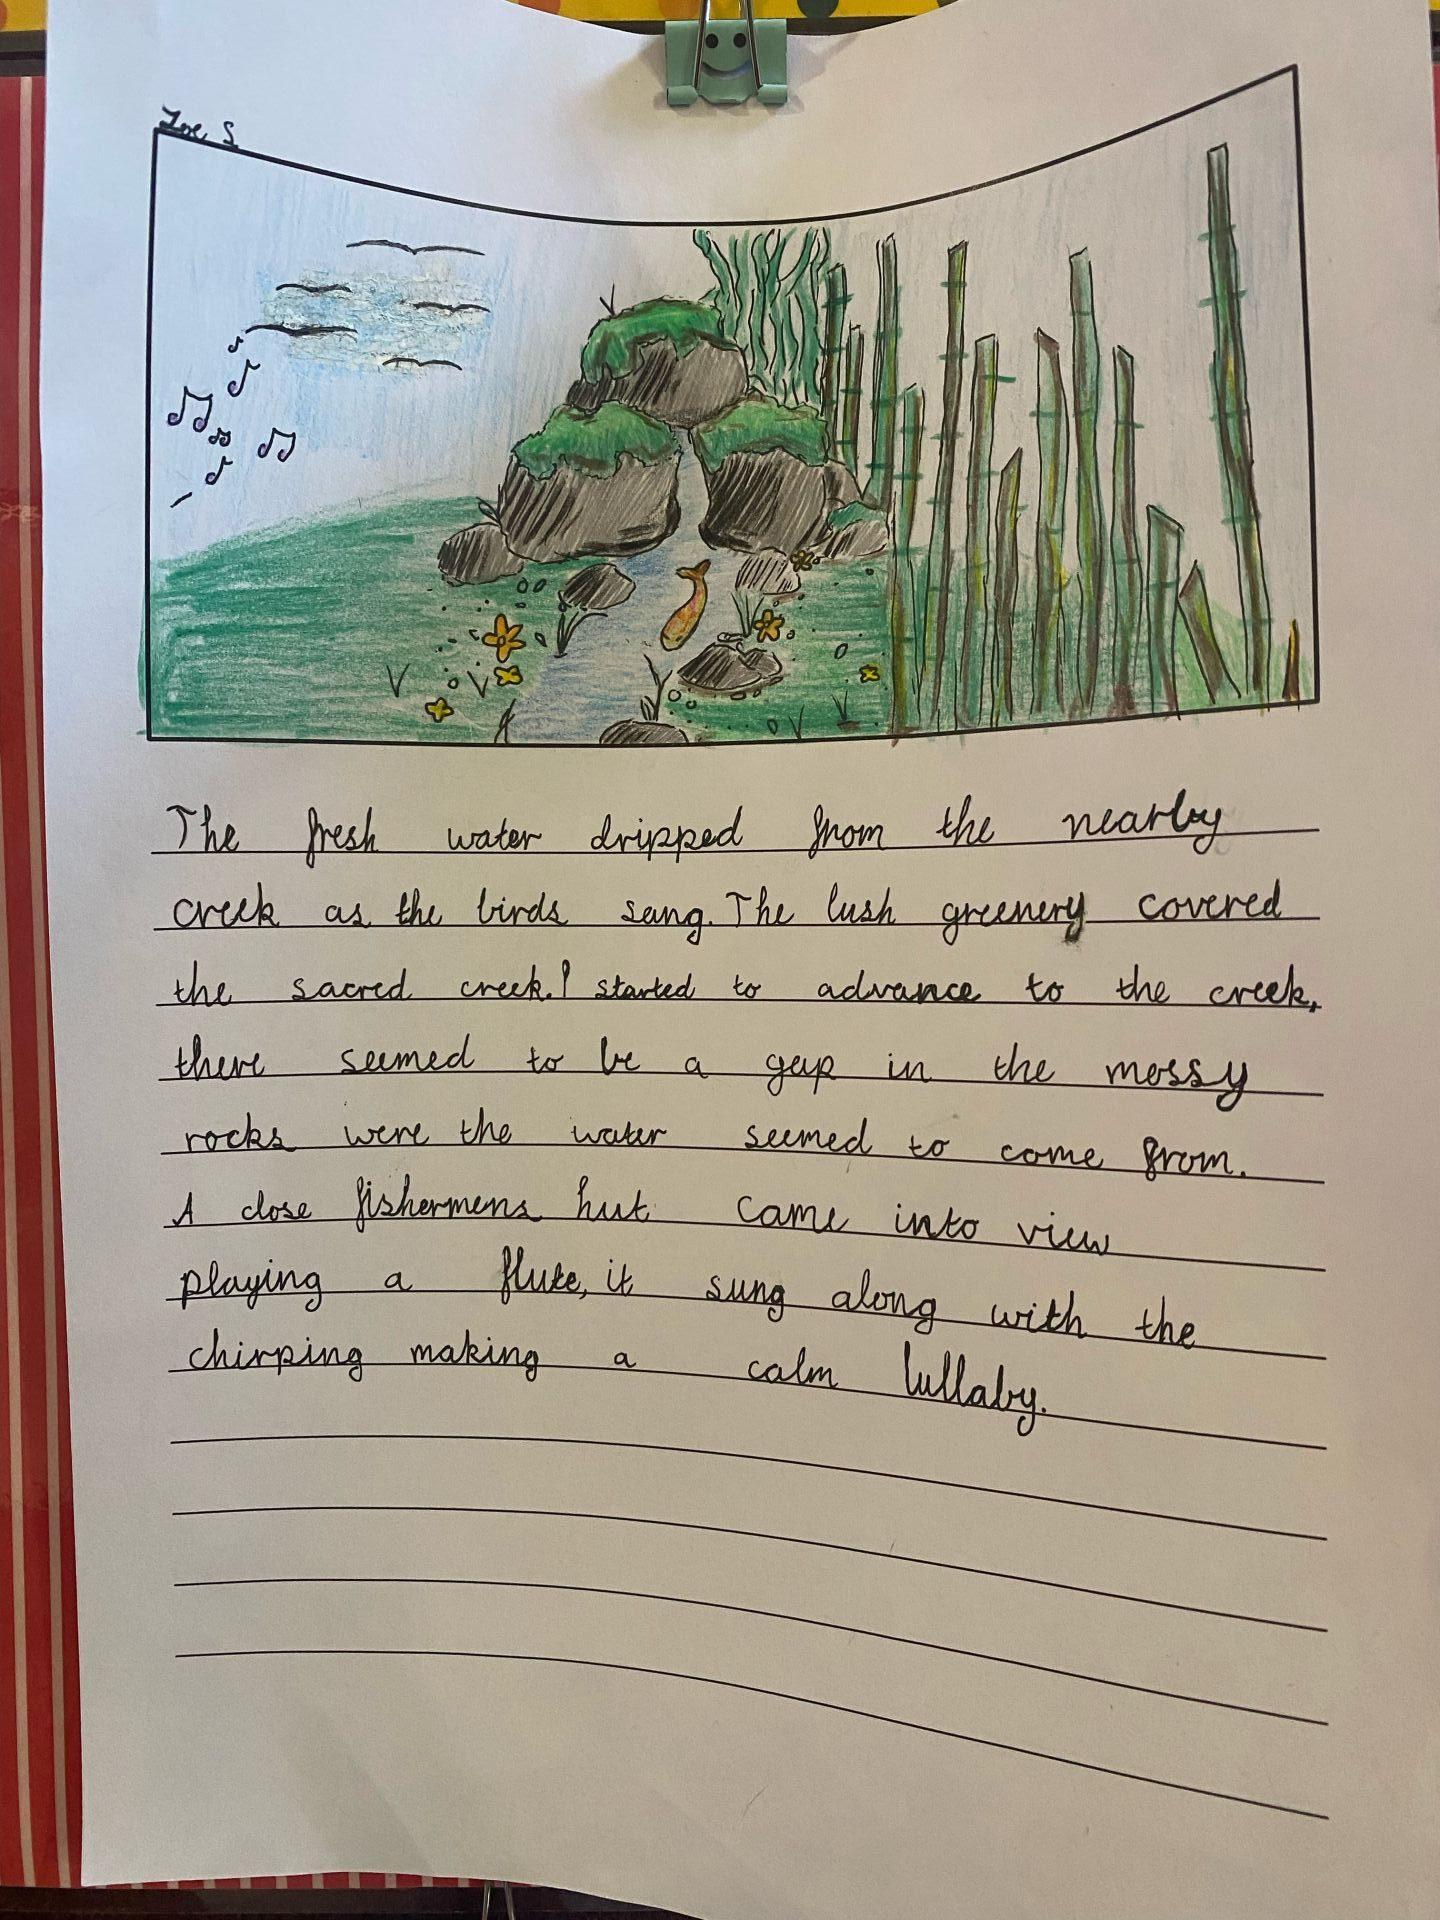 Zoe S
The fresh water dripped from the nearby
creek as the birds sang. The lush greenery covered
the sacred creek. I started to advance to the creek,
there seemed to be a gap in the mossy
rocks were the water seemed to come from.
A close fishermens hut came into view
playing a flute, it sung along with the
chirping making a calm lullaby.